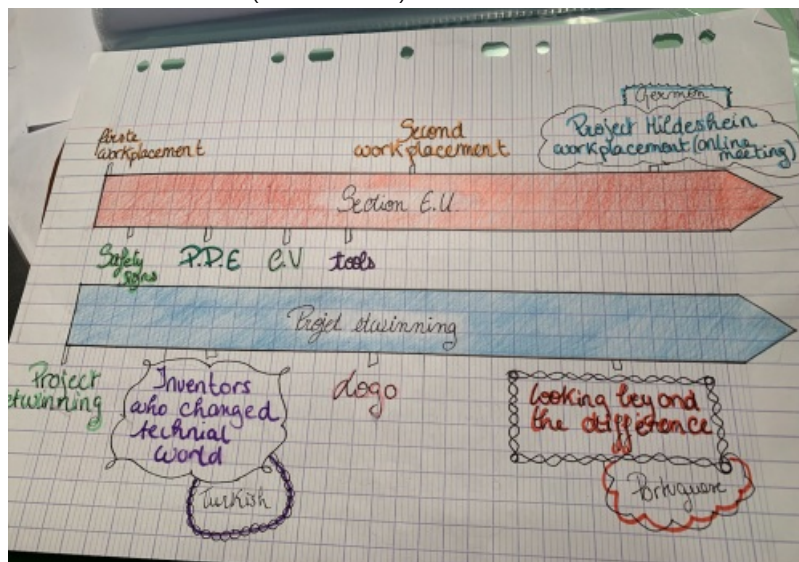 German
Firste
workplacement
Second
workplacement
Project Hildeshein
workplacement (online
meeting)
Section E.U.
Safety
signs
P.P.E
C.V
tools
Projet etwinning
Project
etwinning
Inventors
who changed
technial
world
Logo
looking beyond
the difference
Turkish
Portuguese